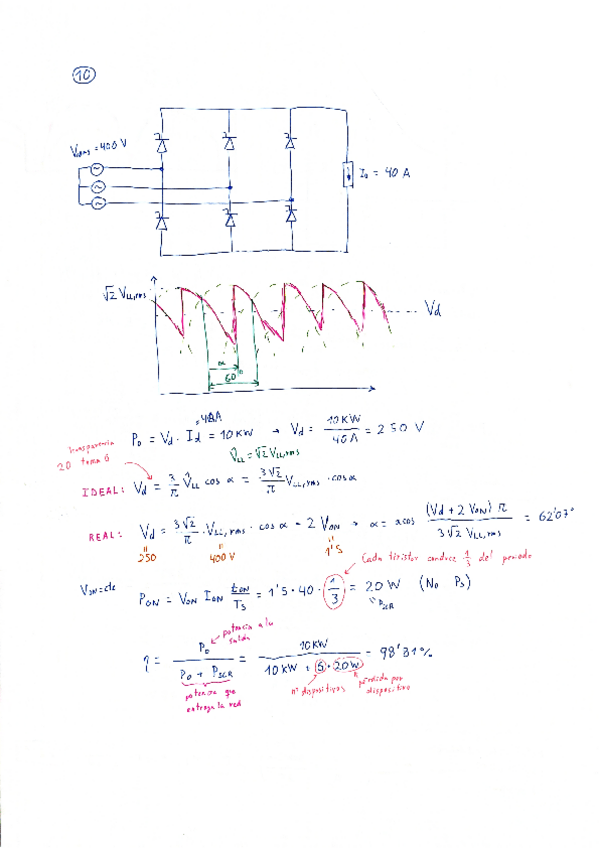 10
= 400 V
I₀ = 40 A
√2 V_LL,rms
Vd
α
60°
40A
P₀ = Vd · Id = 10 KW → Vd = 10 KW / 40 A = 250 V
Transparencia
20 tema 8
V̂_LL = √2 V_LL,rms
IDEAL: Vd = 3/π V̂_LL cos α = 3√2/π V_LL,rms · cos α
REAL: Vd = 3√2/π · V_LL,rms · cos α - 2 V_ON → α = acos (Vd + 2 V_ON) π / 3√2 V_LL,rms = 62'07°
250
400 V
1'5
Cada tiristor conduce 1/3 del periodo
V_ON = cte
P_ON = V_ON I_ON t_ON/T_S = 1'5 · 40 · 1/3 = 20 W (No P_S)
P_SCR
potencia a la
salida
η = P₀ / P₀ + P_SCR = 10 KW / 10 KW + 6 · 20 W = 98'81%
potencia que
entrega la red
nº dispositivos
pérdida por
dispositivo